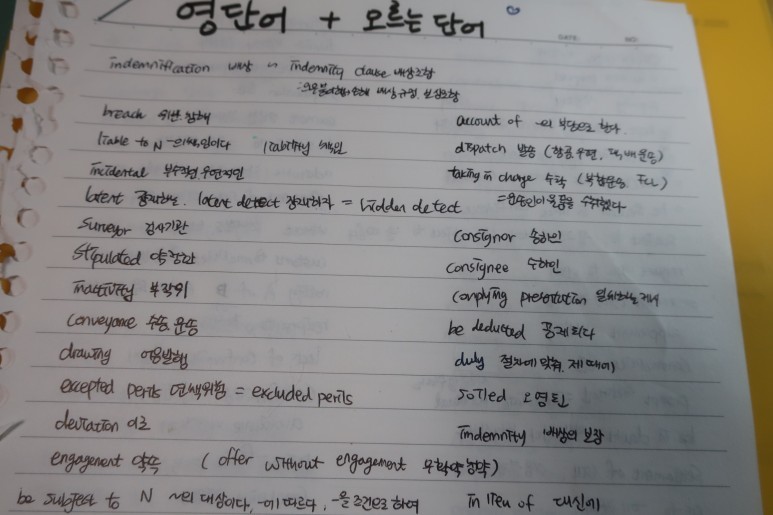 영단어 + 모르는 단어
DATE: NO:
indemnification 배상 ~ indemnity clause 배상조항
: 의무불이행 손해 배상 규정 보장조항
breach 위반. 침해
liable to N ~의 책임이다 liability 책임
incidental 부수적인 우연적인
latent 잠재하는. latent detect 잠재하자 = hidden detect
surveyor 검사기관
stipulated 약정한
inactivity 부작위
conveyance 수송 운송
drawing 어음발행
excepted perils 면책위험 = excluded perils
deviation 이로
engagement 약속 ( offer without engagement 무확약청약)
be subject to N ~의 대상이다, ~에 따르다, ~을 조건으로 하여
account of ~의 부담으로 한다.
dispatch 발송 (항공우편, 택배운송)
taking in charge 수탁 (복합운송, FCL)
= 운송인이 물품을 수취했다
consignor 송하인
consignee 수하인
complying presentation 일치하는 제시
be deducted 공제되다
duly 절차에 맞춰, 제때에
soiled 오염된
indemnity 배상의 보장
in lieu of 대신에